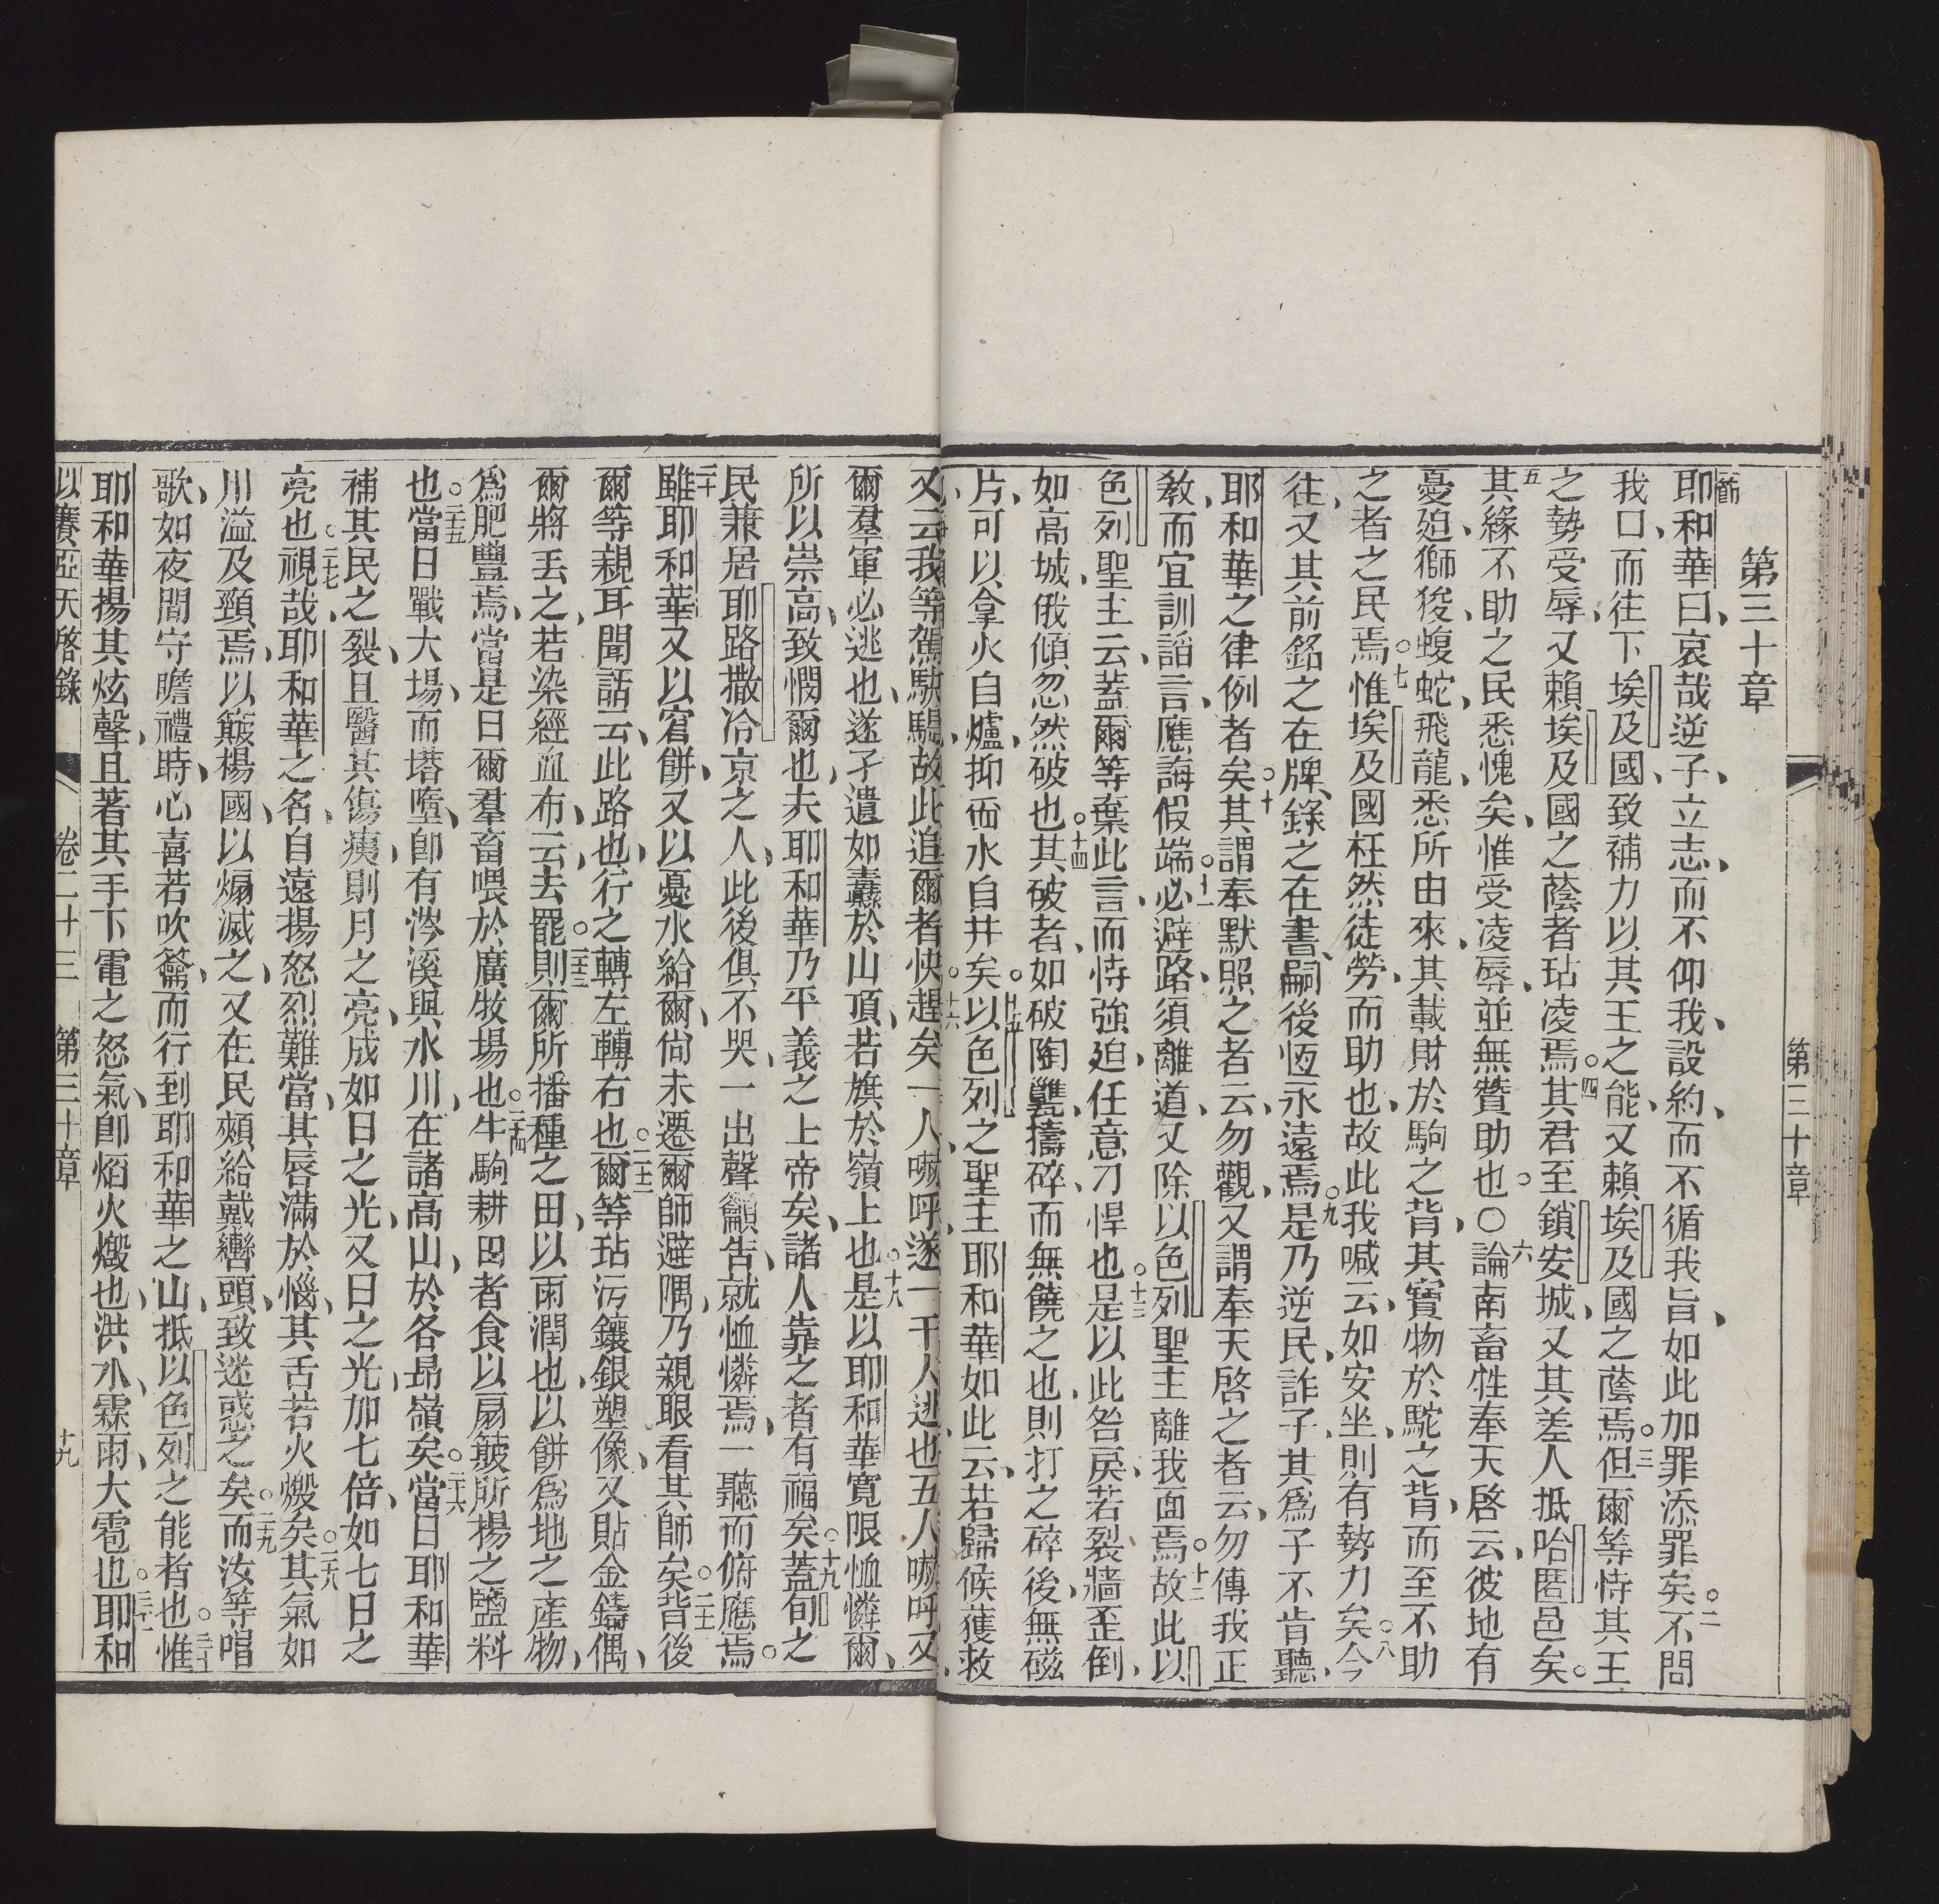 第三十章
第三十章
一節耶和華曰、哀哉逆子、立志、而不仰我、設約、而不循我旨、如此加罪添罪矣。二不問
我口、而往下埃及國、致補力以其王之能、又賴埃及國之蔭焉。三但爾等恃其王
之勢受辱、又賴埃及國之蔭者玷凌焉。四其君至鎖安城、又其差人抵哈匿邑矣。
五其緣不助之民悉愧矣、惟受凌辱、並無贊助也。○六論南畜牲奉天啓云、彼地有
憂廹獅狻蝮蛇、飛龍、悉所由來、其載財於駒之背、其寶物於駝之背、而至不助
之者之民焉。七惟埃及國枉然徒勞、而助也、故此我喊云、如安坐、則有勢力矣。八今
往、又其前銘之在牌、錄之在書、嗣後恆永遠焉。九是乃逆民、詐子、其爲子不肯聽、
耶和華之律例者矣。十其謂奉默照之者云、勿觀、又謂奉天啓之者云、勿傳我正
教、而宜訓謟言、應誨假端。十一必避路、須離道、又除以色列聖主離我面焉。十二故此以
色列聖主云、蓋爾等棄此言、而恃強廹、任意刁悍也。十三是以此咎戾、若裂牆歪倒、
如高城、俄傾忽然破也。十四其破者、如破陶甕、擣碎、而無饒之也、則打之碎後、無磁
片、可以拿火自爐、抑舀水自井矣。十五以色列之聖主耶和華如此云、若歸候獲救
又云、我等駕駃騠、故此追爾者快趕矣。一人嚇呼、遂一千人逃也、五人嚇呼、又
爾羣軍必逃也、遂孑遺如纛於山頂、若旗於嶺上也。十八是以耶和華寬限恤憐爾、
所以崇高、致憫爾也、夫耶和華乃平義之上帝矣、諸人靠之者有福矣。十九蓋旬之
民兼居耶路撒冷京之人、此後俱不哭、一出聲籲告、就恤憐焉、一聽而俯應焉。
二十雖耶和華又以窘餅、又以憂水給爾、尙未遷爾師避隅、乃親眼看其師矣。二十一背後
爾等親耳聞話云、此路也、行之、轉左轉右也。二十二爾等玷污鑲銀塑像、又貼金鑄偶、
爾將丟之、若染經血布、云去罷。二十三則爾所播種之田、以雨潤也、以餅爲地之產物、
爲肥豐焉、當是日爾羣畜喂於廣牧場也。二十四牛駒耕田者食以扇簸所揚之鹽料
也。二十五當日戰大場、而塔墮、卽有涔溪與水川、在諸高山、於各昻嶺矣。二十六當日耶和華
補其民之裂、且醫其傷痍、則月之亮、成如日之光、又日之光、加七倍、如七日之
亮也。二十七視哉、耶和華之名、自遠揚怒烈難當、其唇滿於惱、其舌若火燬矣。二十八其氣如
川溢及頸焉、以簸楊國、以煽滅之、又在民頰給戴轡頭、致迷惑之矣。二十九而汝等唱
歌、如夜間守瞻禮時、心喜若吹籥、而行到耶和華之山、抵以色列之能者也。三十惟
耶和華揚其炫聲、且著其手下、電之怒氣、卽焰火燬也、洪水、霖雨、大雹也。三十一耶和
以賽亞天啓錄　卷二十三　第三十章　十九